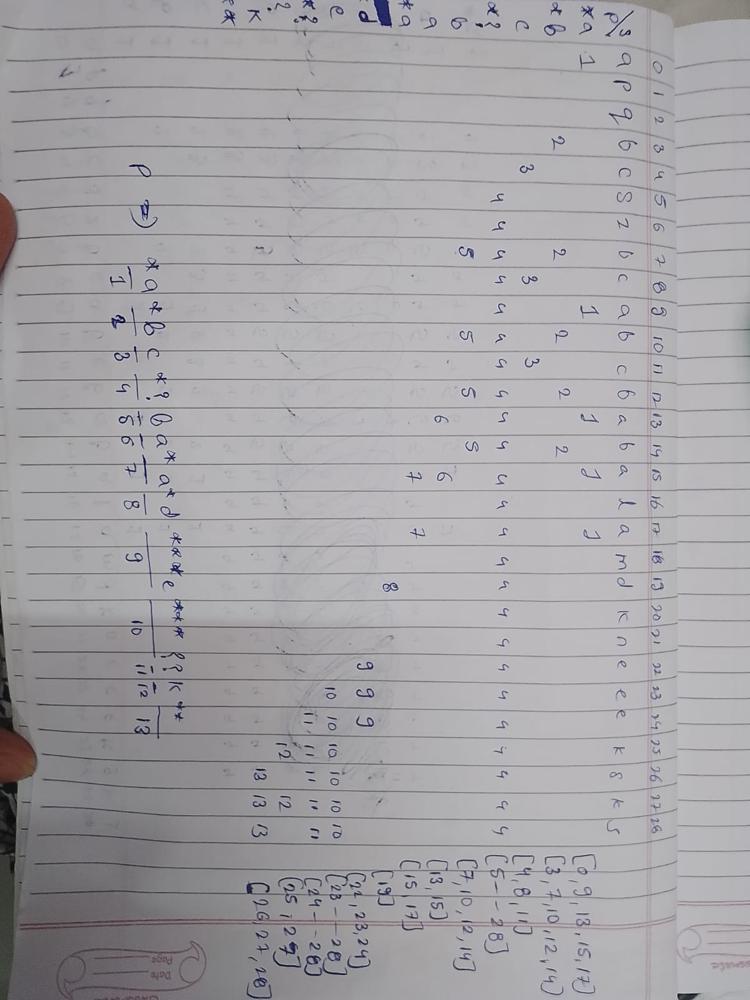 0 1 2 3 4 5 6 7 8 9 10 11 12 13 14 15 16 17 18 19 20 21 22 23 24 25 26 27 28
P/S a p q b c s z b c a b c b a b a l a m d k n e e e k s k s
*a 1 1 1 1 1 [0, 9, 13, 15, 17]
*b 2 2 2 2 2 [3, 7, 10, 12, 14]
c 3 3 3 [4, 8, 11]
*? 4 4 4 4 4 4 4 4 4 4 4 4 4 4 4 4 4 4 4 4 4 4 4 4 [5 -- 28]
b 5 5 5 5 [7, 10, 12, 14]
a 6 6 [13, 15]
*a 7 7 [15, 17]
d 8 [19]
e 9 9 9 [22, 23, 24]
*? 10 10 10 10 10 10 [23 -- 28]
? 11 11 11 11 11 [24 -- 28]
k 12 12 [25, 27]
** 13 13 13 [26, 27, 28]
P => *a *b c *? b a *a *d ***e *** ?? k **
1 2 3 4 5 6 7 8 9 10 11 12 13
Date
Page